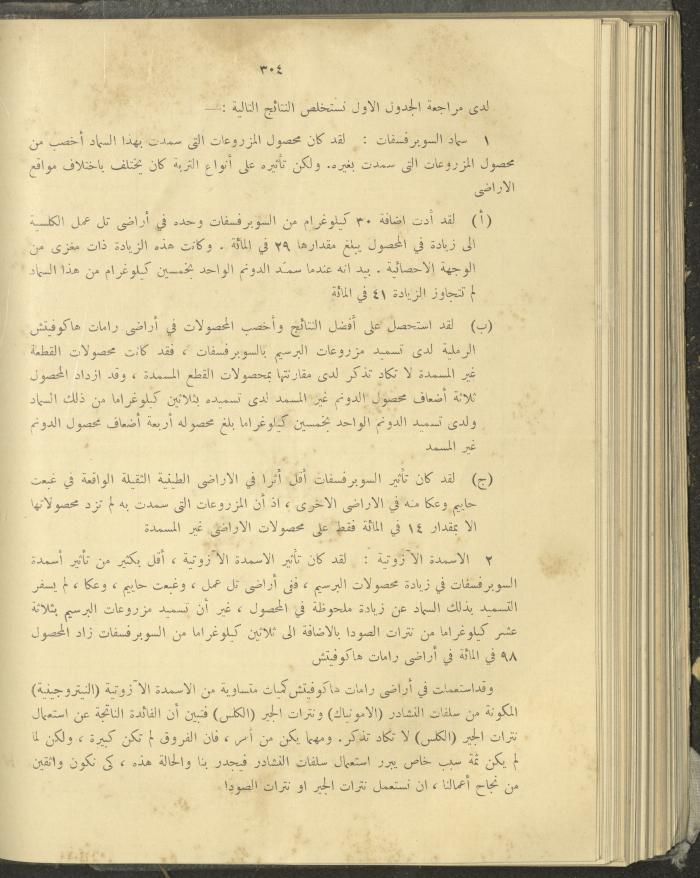 ٣٠٤
لدى مراجعة الجدول الاول نستخلص النتائج التالية :—
١ سماد السوبرفسفات : لقد كان محصول المزروعات التى سمدت بهذا السماد أخصب من
محصول المزروعات التى سمدت بغيره. ولكن تأثيره على أنواع التربة كان يختلف باختلاف مواقع
الاراضى
(أ) لقد أدت اضافة ٣٠ كيلوغرام من السوبرفسفات وحده في أراضى تل عمل الكلسية
الى زيادة في المحصول يبلغ مقدارها ٢٩ في المائة . وكانت هذه الزيادة ذات مغزى من
الوجهة الاحصائية . بيد انه عندما سمّد الدونم الواحد بخمسين كيلوغرام من هذا السماد
لم تتجاوز الزيادة ٤١ في المائة
(ب) لقد استحصل على أفضل النتائج وأخصب المحصولات في أراضى رامات هاكوفيتش
الرملية لدى تسميد مزروعات البرسيم بالسوبرفسفات ، فقد كانت محصولات القطعة
غير المسمدة لا تكاد تذكر لدى مقارنتها بمحصولات القطع المسمدة ، وقد ازداد المحصول
ثلاثة أضعاف محصول الدونم غير المسمد لدى تسميده بثلاثين كيلوغراما من ذلك السماد
ولدى تسميد الدونم الواحد بخمسين كيلوغراما بلغ محصوله أربعة أضعاف محصول الدونم
غير المسمد
(ج) لقد كان تأثير السوبرفسفات أقل أثرا في الاراضى الطينية الثقيلة الواقعة في غبعت
حاييم وعكا منه في الاراضى الاخرى ، اذ أن المزروعات التى سمدت به لم تزد محصولاتها
الا بمقدار ١٤ في المائة فقط على محصولات الاراضى غير المسمدة
٢ الاسمدة الآزوتية : لقد كان تأثير الاسمدة الآزوتية ، أقل بكثير من تأثير أسمدة
السوبرفسفات في زيادة محصولات البرسيم ، ففى أراضى تل عمل ، وغبعت حاييم ، وعكا ، لم يسفر
التسميد بذلك السماد عن زيادة ملحوظة في المحصول ، غير أن تسميد مزروعات البرسيم بثلاثة
عشر كيلوغراما من نترات الصودا بالاضافة الى ثلاثين كيلوغراما من السوبرفسفات زاد المحصول
٩٨ في المائة في أراضى رامات هاكوفيتش
وقد استعملت في أراضى رامات هاكوفيتش كميات متساوية من الاسمدة الآزوتية (النيتروجينية)
المكونة من سلفات النشادر (الامونياك) ونترات الجير (الكلس) فتبين أن الفائدة الناتجة عن استعمال
نترات الجير (الكلس) لا تكاد تذكر. ومهما يكن من أمر ، فان الفروق لم تكن كبيرة ، ولكن لما
لم يكن ثمة سبب خاص يبرر استعمال سلفات النشادر فيجدر بنا والحالة هذه ، كى نكون واثقين
من نجاح أعمالنا ، ان نستعمل نترات الجير او نترات الصودا!